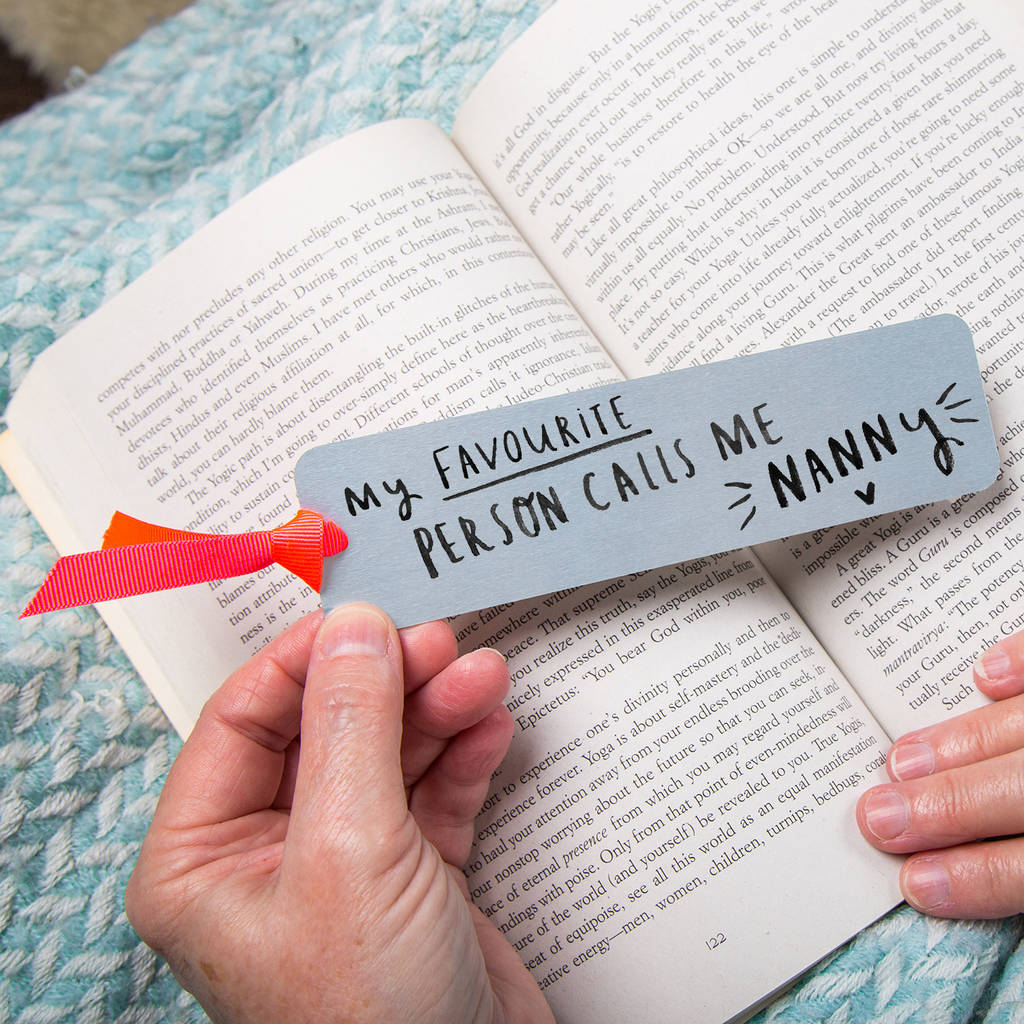 competes with nor precludes any other religion. You may use your
your disciplined practices of sacred union—to get closer to Krishna,
Muhammad, Buddha or Yahweh. During my time at the Ashram, I
devotees who identified themselves as practicing Christians, Jews,
dhists, Hindus and even Muslims. I have met others who would rather
talk about their religious affiliation at all, for which, in this contentious
world, you can hardly blame them.
The Yogic path is about disentangling the built-in glitches of the
condition, which I'm going to over-simply define here as the heartbreaking
to sustain Different schools of thought over the
found for man's apparently inherent
blames calls it ignorance, Islam
tion attribute Judeo-Christian
ness is the
My FAVOURITE
PERSON CALLS ME
NANNY
have failed
somewhere within
peace. That supreme Self
you realize this truth, say the Yogis, you
nicely expressed in this exasperated line from
Epictetus: "You bear God within you, poor
effort to experience one's divinity personally and then to
experience forever. Yoga is about self-mastery and the dedi-
to haul your attention away from your endless brooding over the
your nonstop worrying about the future so that you can seek, in-
place of eternal presence from which you may regard yourself and
ndings with poise. Only from that point of even-mindedness will
ture of the world (and yourself) be revealed to you. True Yogis,
seat of equipoise, see all this world as an equal manifestation
eative energy—men, women, children, turnips, bedbugs, coral
122
it's all God in disguise. But the Yogis
opportunity, because only in a human form
God-realization ever occur. The turnips, the
get a chance to find out who they really are. But we
"Our whole business therefore in this life," wrote
rather Yogically, "is to restore to health the eye of the heart
may be seen."
Like all great philosophical ideas, this one is simple to understand
virtually impossible to imbibe. OK—so we are all one, and divinity abides
within us all equally. No problem. Understood. But now try living from that
place. Try putting that understanding into practice twenty-four hours a day.
It's not so easy. Which is why in India it is considered a given that you need
a teacher for your Yoga. Unless you were born one of those rare shimmering
saints who come into life already fully actualized, you're going to need some
guidance along your journey toward enlightenment. If you're lucky enough
find a living Guru. This is what pilgrims have been coming to India
Alexander the Great sent an ambassador to India
with a request to find one of these famous Yogis
(The ambassador did report finding
to travel.) In the first century
wrote of his
the earth and
nothing
is a great
impossible
A great Yogi is any
ened bliss. A Guru is a great
ers. The word Guru is composed
"darkness," the second means
light. What passes from the
mantravirya: "The potency
your Guru, then, not only
tually receive
Such